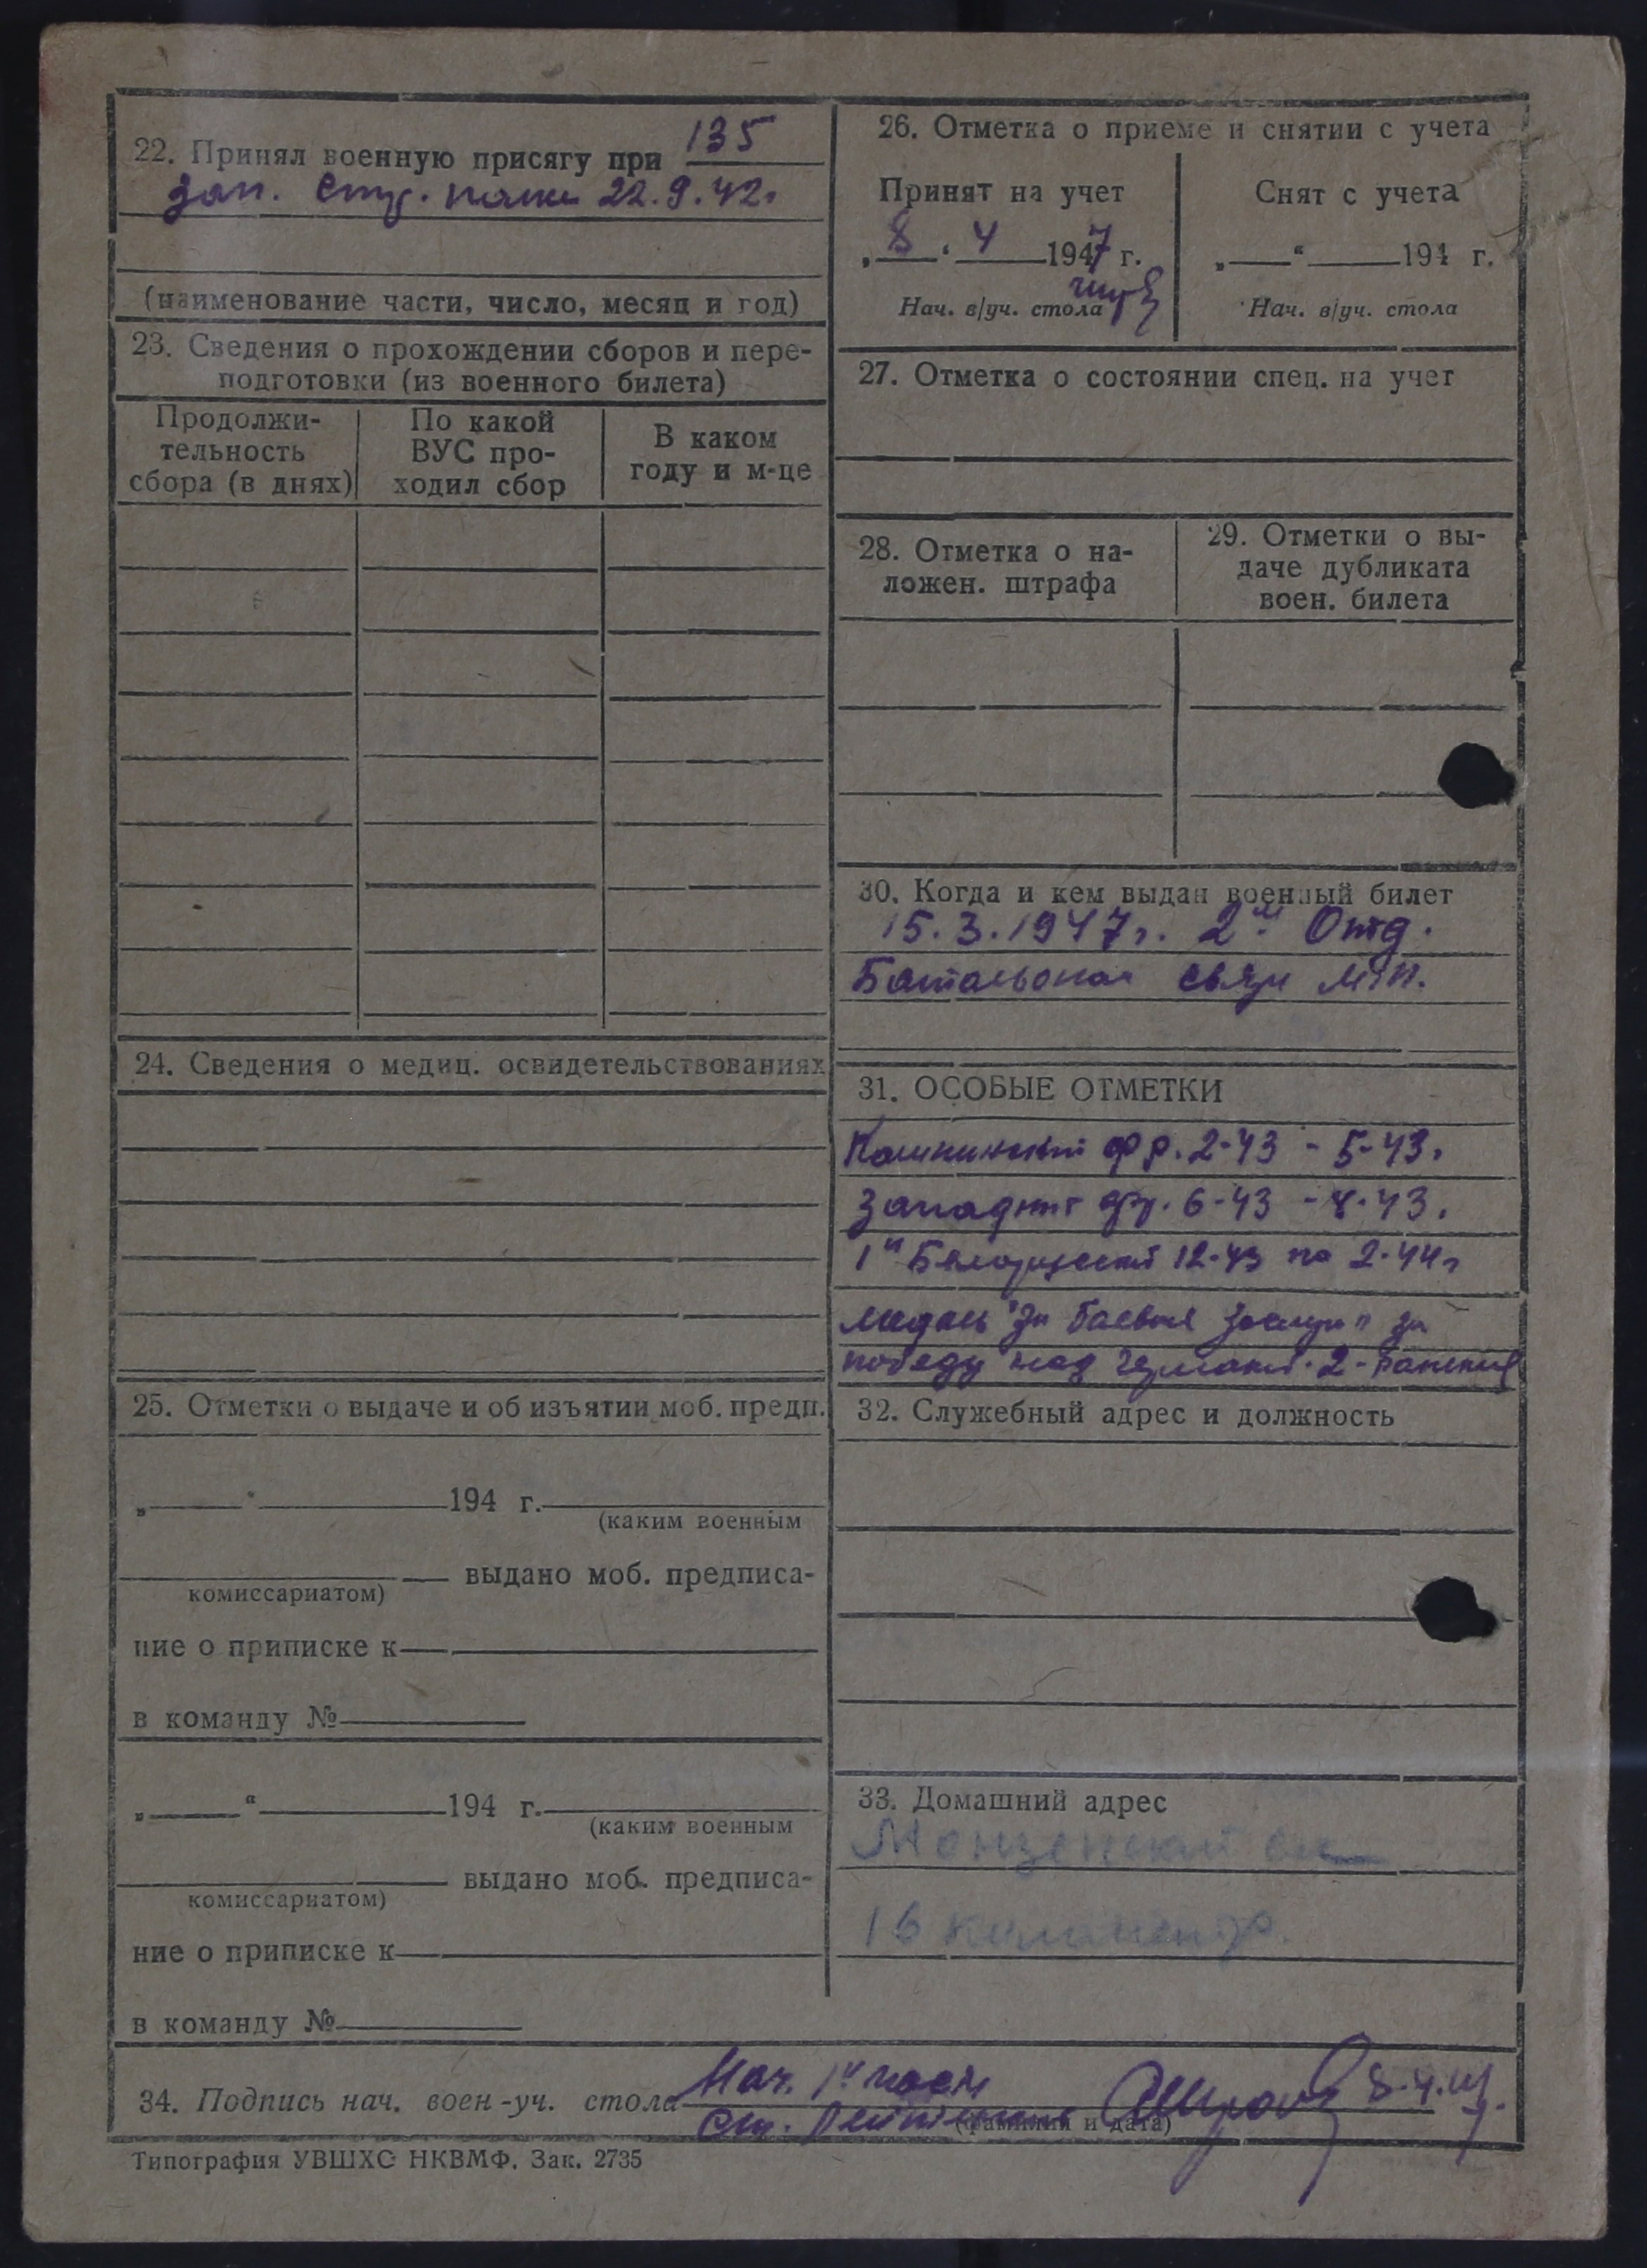 22. Принял военную присягу при 135
зап. стр. полке 22.9.42г
(наименование части, число, месяц и год)
23. Сведения о прохождении сборов и пере-
подготовки (из военного билета)
Продолжи-
тельность
сбора (в днях)
По какой
ВУС про-
ходил сбор
В каком
году и м-це
24. Сведения о медиц. освидетельствованиях
25. Отметки о выдаче и об изъятии моб. предп.
„ " 194 г.
(каким военным
комиссариатом) выдано моб. предписа-
ние о приписке к
в команду №
„ " 194 г.
(каким военным
комиссариатом) выдано моб. предписа-
ние о приписке к
в команду №
26. Отметка о приеме и снятии с учета
Принят на учет
„ 8 " 4 1947 г.
Нач. в/уч. стола
Снят с учета
„ " 194 г.
Нач. в/уч. стола
27. Отметка о состоянии спец. на учет
28. Отметка о на-
ложен. штрафа
29. Отметки о вы-
даче дубликата
воен. билета
30. Когда и кем выдан военный билет
15.3.1947г. 2й Отд.
Батальоном связи
31. ОСОБЫЕ ОТМЕТКИ
Калининский фр. 2-43 - 5-43.
Западный фр. 6-43 - 8-43.
1й Белорусский 12-43 по 2-44г
медаль "За боевые заслуги" за
победу над Германией. 2-ранения
32. Служебный адрес и должность
33. Домашний адрес
16 километр.
34. Подпись нач. воен-уч. стола Нач. 1й части
ст. Лейтенант 8.4.47
(фамилия и дата)
Типография УВШХС НКВМФ. Зак. 2735